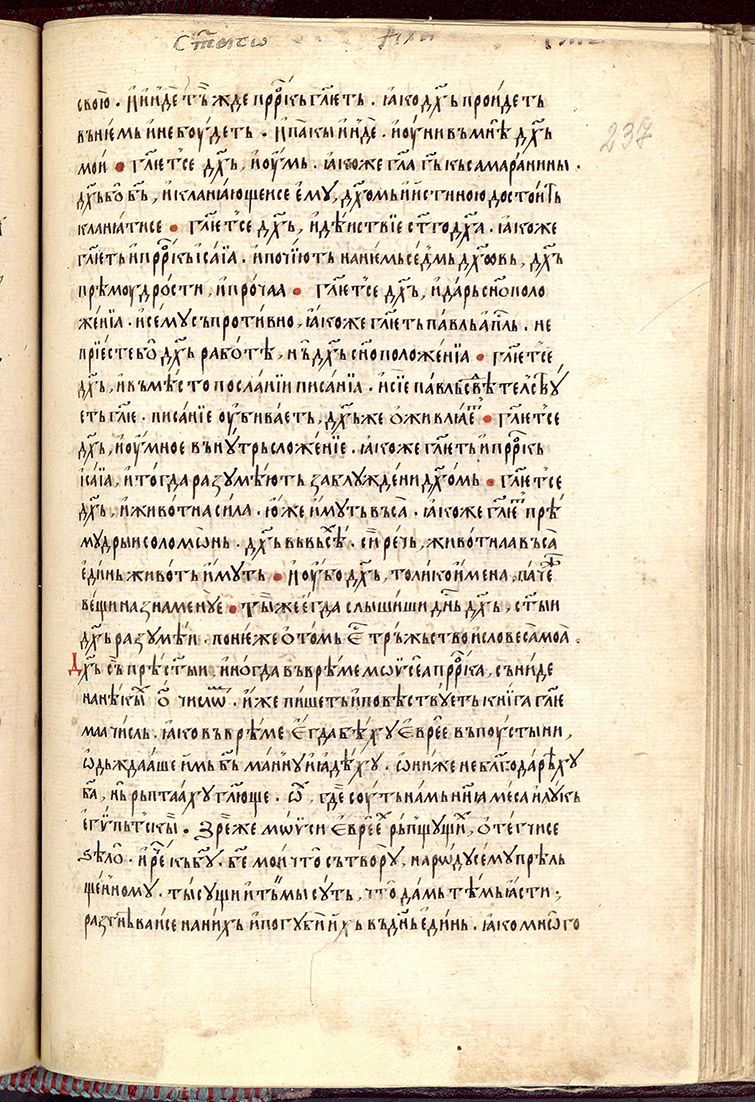 ст҃аго
237
свою̀ . и҆и҆нде тъ́жде прⷪ҇ркь гл҃ѥть . ꙗ҆ко дх҃ь проидеть
въ нѥмь и҆ не боудеть . и҆ пакы и҆нде . и҆ оуныи въ мнѣ̀ дх҃ь
мои • гл҃ѥтсе дх҃ь , и҆ оумь . ꙗ҆коже гл҃а г҃ь къ самаранины .
дх҃ь бо б҃ь , и҆ кланꙗющеисе ѥмꙋ , дх҃омь и҆ и҆стиною достоить
кланꙗтисе • гл҃ѥтсе дх҃ь , и҆ дѣиствїе ст҃го дх҃а . ꙗ҆коже
гл҃ѥть и҆ прⷪ҇ркь і҆саїа . и҆ почїють на нѥмь седмь дх҃овь , дх҃ь
прѣмоудрости , и҆ прочаа • гл҃ѥтсе дх҃ь , и҆ дарь сн҃ополо
женїа . и҆ семꙋ съпротивно , ꙗ҆коже гл҃ѥть павль ап҃ль . не
прїесте бо дх҃ь работѣ , нь дх҃ь сн҃оположенїа • гл҃ѥтсе
дх҃ь , и҆ въ мѣсто посланїи писанїа . и҆ сїе павль свѣтелствꙋ
еть гл҃ѥ . писанїе оубиваеть , дх҃ь же ѡживлꙗеть • гл҃ѥтсе
дх҃ь , и҆ оумное вънꙋтрь сложенїе . ꙗ҆коже гл҃ѥть и҆ прⷪ҇ркь
і҆саїа , и҆ тогда разꙋмѣють заблꙋждени дх҃омь • гл҃ѥтсе
дх҃ь , и҆ животна сила . юже и҆мꙋть въса . ꙗ҆коже гл҃ѥть прѣ
мꙋдрыи соломѡнь . дх҃ь въ въсѣхь . си рѣчь , животнаа въса
единь животь и҆мꙋть • и҆ оубо дх҃ь , толико и҆мена , паче
вещи назнаменꙋе • Тѣмже егда слышиши дн҃ь дх҃ь , ст҃ыи
дх҃ь разꙋмѣи . понѥже ѡ томь ѥⷭ҇ тръжьство и҆ слово самоа .
Дх҃ь сь прѣст҃ыи , и҆ногда въ врѣме мѡѵсеа прⷪ҇рка , съниде
на нѣкыⷯ ѿ числѡⷨ . и҆же пишеть и҆ повѣствꙋеть книга гл҃ѥ
маа числь . ꙗ҆ко въ врѣме ѥгда бѣхꙋ ѥврее въ поустыни ,
ѡдъждааше и҆мь б҃ь маннꙋ и҆ ꙗдѣхꙋ . ѡни же не благодарѣхꙋ
б҃а , нь рьптаахꙋ гл҃юще . ѿ , где соуть намь ннꙗ меса и҆ лꙋкь
егѵпьтскыи . Зреже мѡѵси ѥврее рьпщꙋщиⷯ , ѡтегчисе
ѕѣло . и҆ рⷱ҇е къ б҃ꙋ . б҃е мои что сътворꙋ , народꙋ семꙋ прѣль
щенномꙋ . тысꙋщи и҆ тьмы сꙋть , что дамь тѣмь ꙗсти ;
разгнѣваисе на нихь и҆ погꙋби и҆хь въ дн҃ь единь . ꙗ҆ко мнѡго